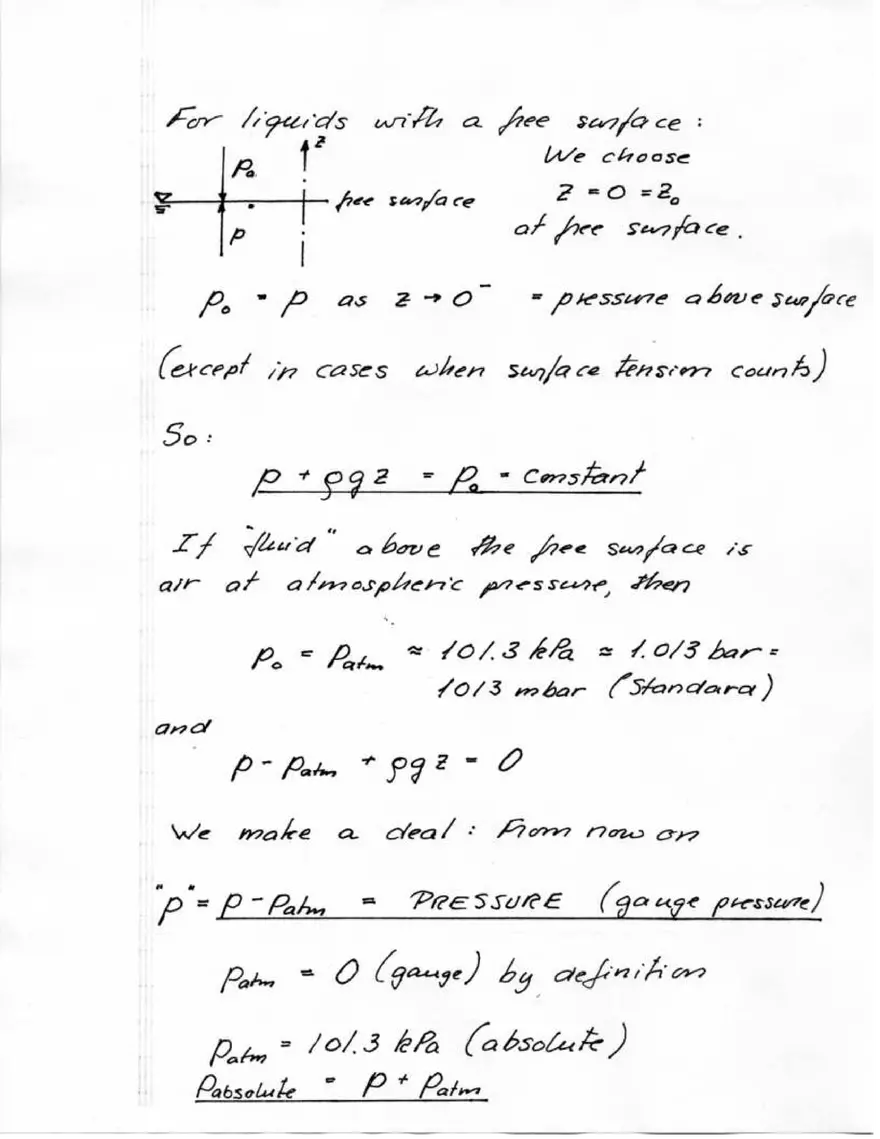 For liquids with a free surface :
z
We choose
p₀
free surface
z = 0 = z₀
p
at free surface .
p₀ = p as z → 0⁻ = pressure above surface
(except in cases when surface tension counts)
So :
p + ρgz = p₀ = constant
If "fluid" above the free surface is
air at atmospheric pressure, then
p₀ = patm ≈ 101.3 kPa ≈ 1.013 bar =
1013 mbar (Standard)
and
p - patm + ρgz = 0
We make a deal : From now on
"p" = p - patm = PRESSURE (gauge pressure)
patm = 0 (gauge) by definition
patm = 101.3 kPa (absolute)
pabsolute = p + patm